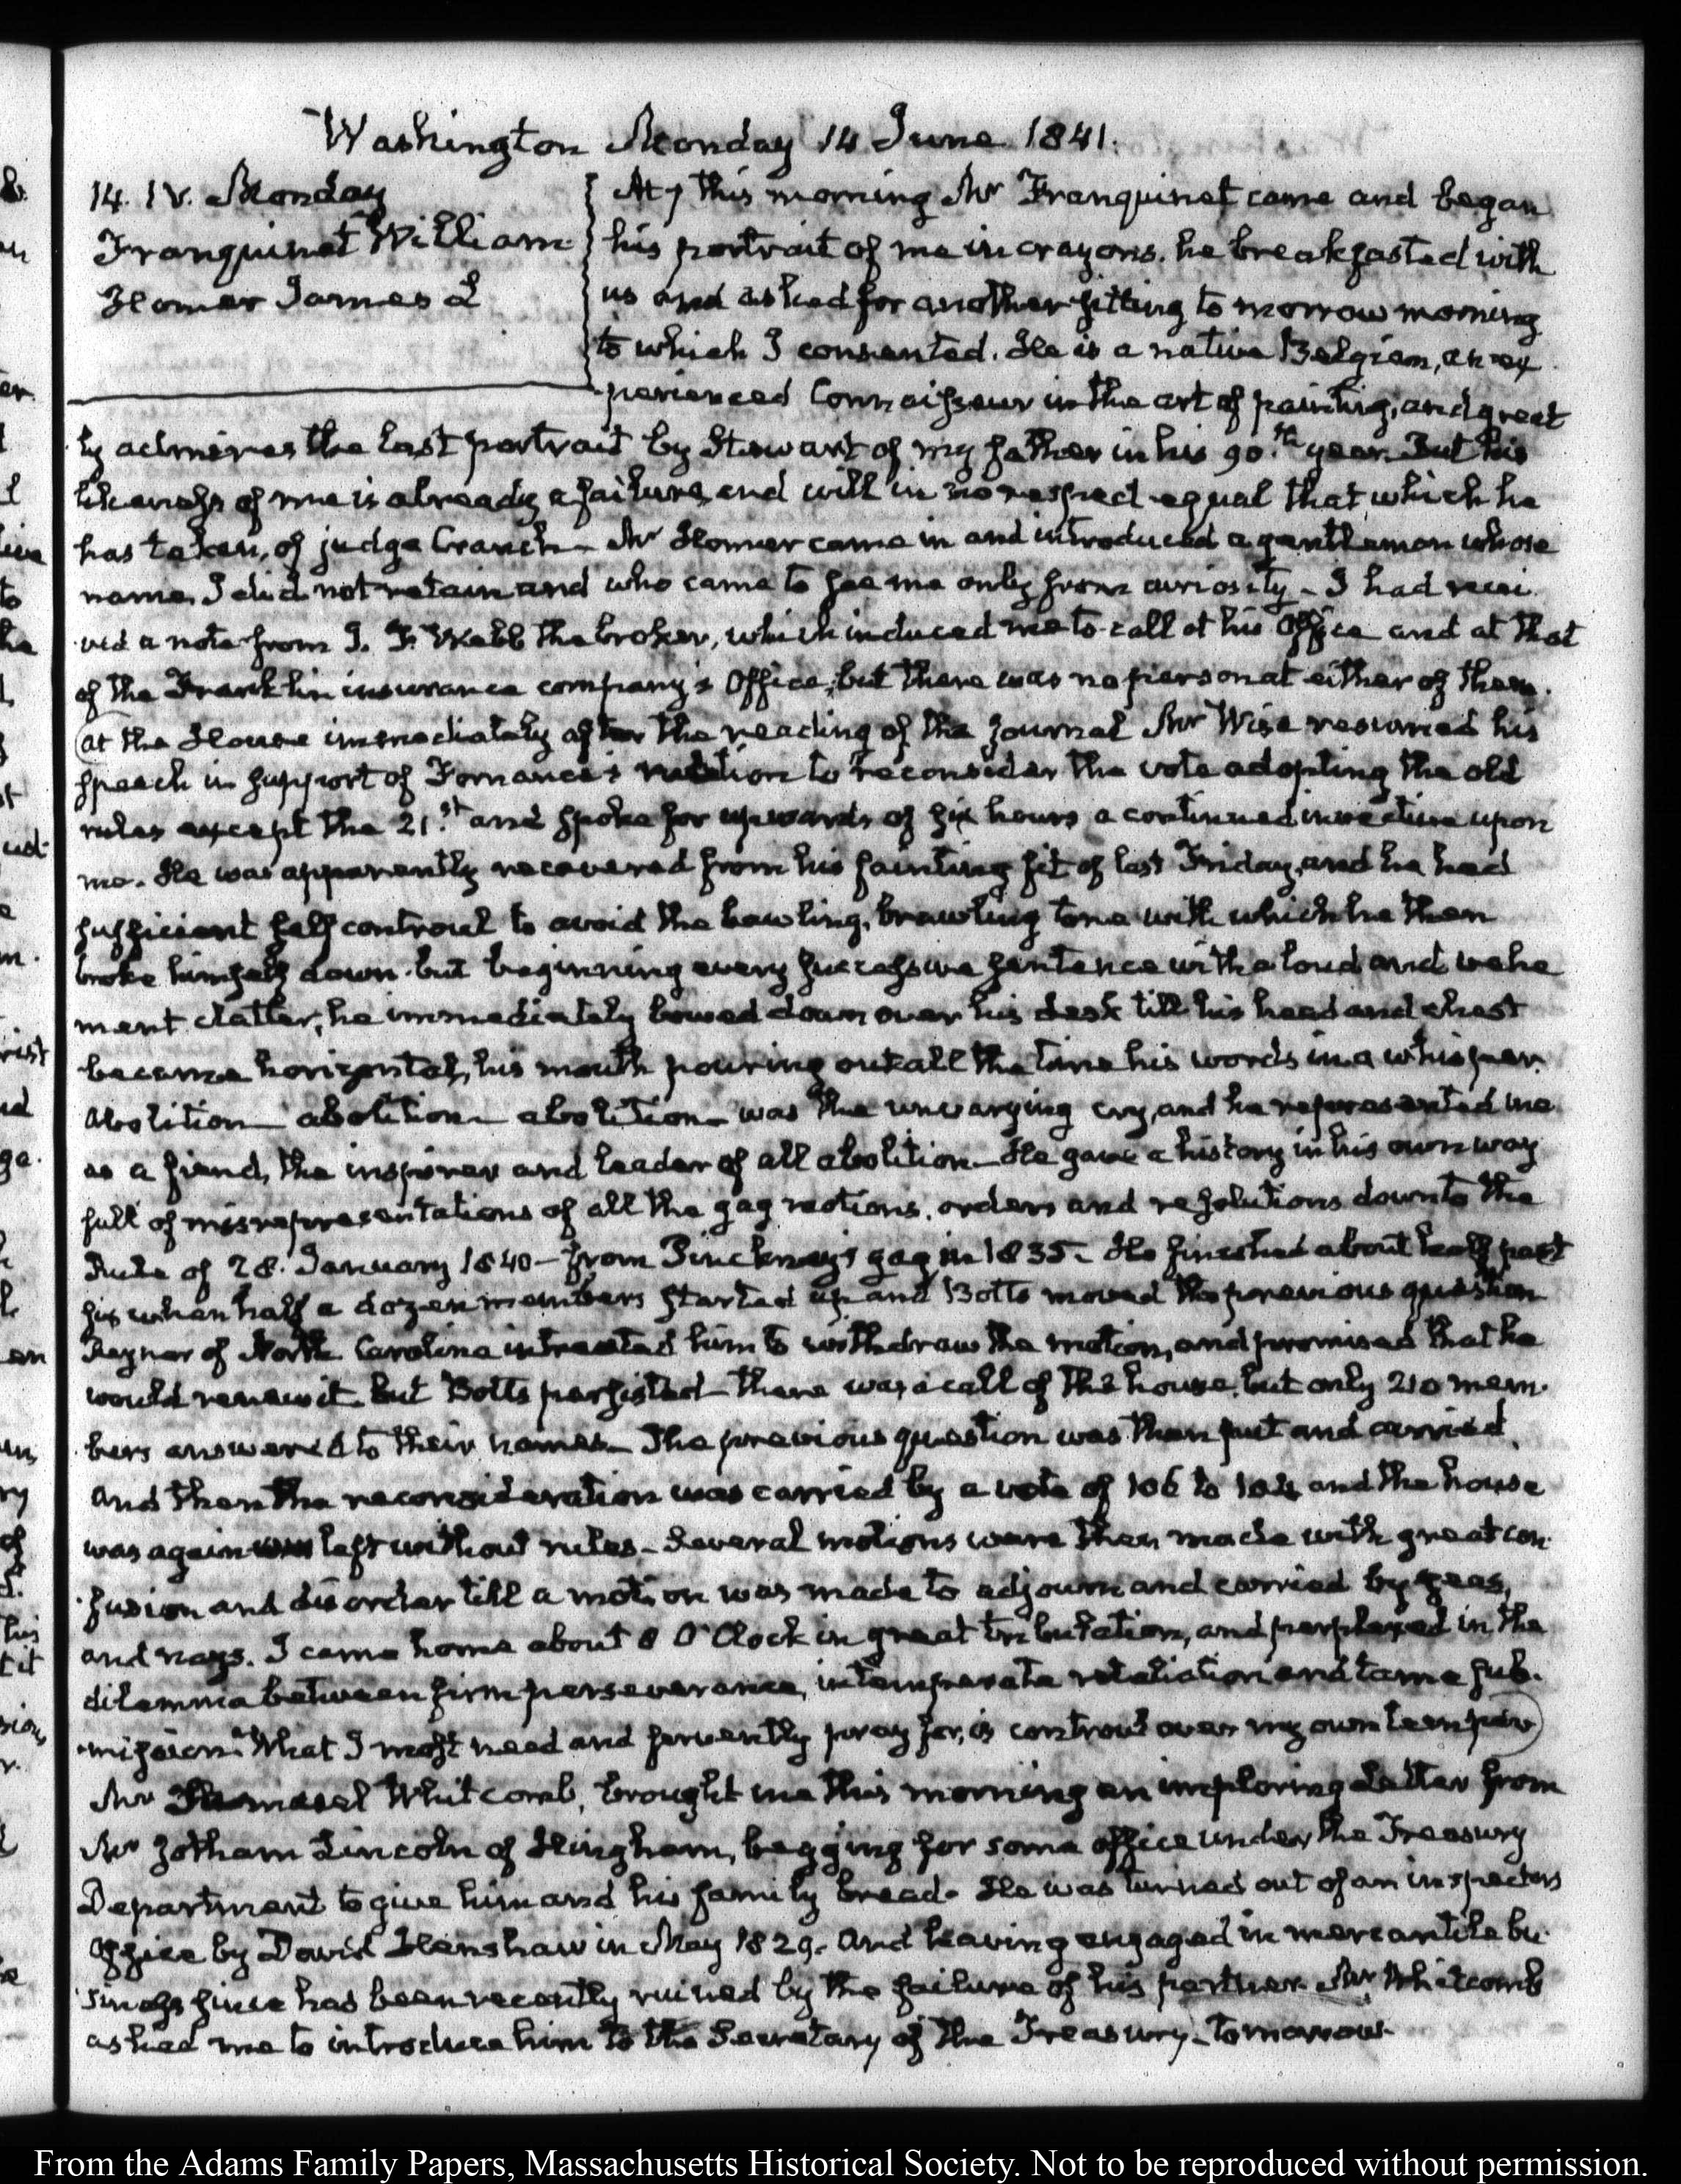 Washington Monday 14 June 1841.
14. IV. Monday
Franquinet William
Homer James L
At 7 this morning Mr Franquinet came and began
his portrait of me in crayons. he breakfasted with
us and asked for another sitting to morrow morning
to which I consented. He is a native Belgian, an ex
perienced Connoisseur in the art of painting, and great
ly admires the last portrait by Stewart of my father in his 90.th year. But his
likeness of me is already a failure, and will in no respect equal that which he
has taken, of judge Cranch— Mr Homer came in and introduced a gentleman whose
name I did not retain and who came to see me only from curiosity— I had recei
ved a note from J. F. Webb the broker, which induced me to call at his Office and at that
of the Franklin insurance company's Office, but there was no person at either of them.
(at the House immediately after the reading of the journal Mr Wise resumed his
speech in support of Fornance's motion to reconsider the vote adopting the old
rules except the 21.st and spoke for upwards of six hours a continued invective upon
me. He was apparently recovered from his fainting fit of last Friday, and he had
sufficient self controul to avoid the bawling, brawling tone with which he then
broke himself down. but beginning every successive sentence with a loud and vehe
ment clatter, he immediately bowed down over his desk till his head and chest
became horizontal, his mouth pouring out all the time his words in a whisper.
Abolition— abolition— abolition— was the unvarying cry, and he represented me
as a fiend, the inspirer and leader of all abolition— He gave a history in his own way
full of misrepresentations of all the gag motions, orders and resolutions down to the
Rule of 28. January 1840— from Pinckney's gag in 1835— He finished about half past
six when half a dozen members started up and Botts moved the previous question
Rayner of North Carolina intreated him to withdraw the motion, and promised that he
would renew it. but Botts persisted— there was a call of the house, but only 210 mem-
bers answered to their names— The previous question was then put and carried,
and then the reconsideration was carried by a vote of 106 to 104 and the house
was again left without rules— Several motions were then made with great con-
fusion and disorder till a motion was made to adjourn and carried by yeas,
and nays. I came home about 8 O'Clock in great tribulation, and perplexed in the
dilemma between firm perseverance, intemperate retaliation and tame sub-
mission. What I most need and fervently pray for, is controul over my own temper)
Mr Whitcomb, brought me this morning an imploring Letter from
Mr Jotham Lincoln of Hingham, begging for some office under, the Treasury
Department to give him and his family bread. He was turned out of an inspectors
Office by David Henshaw in May 1829. and having engaged in mercantile bu-
siness since has been recently ruined by the failure of his partner. Mr Whitcomb
asked me to introduce him to the Secretary of the Treasury— tomorrow—
From the Adams Family Papers, Massachusetts Historical Society. Not to be reproduced without permission.